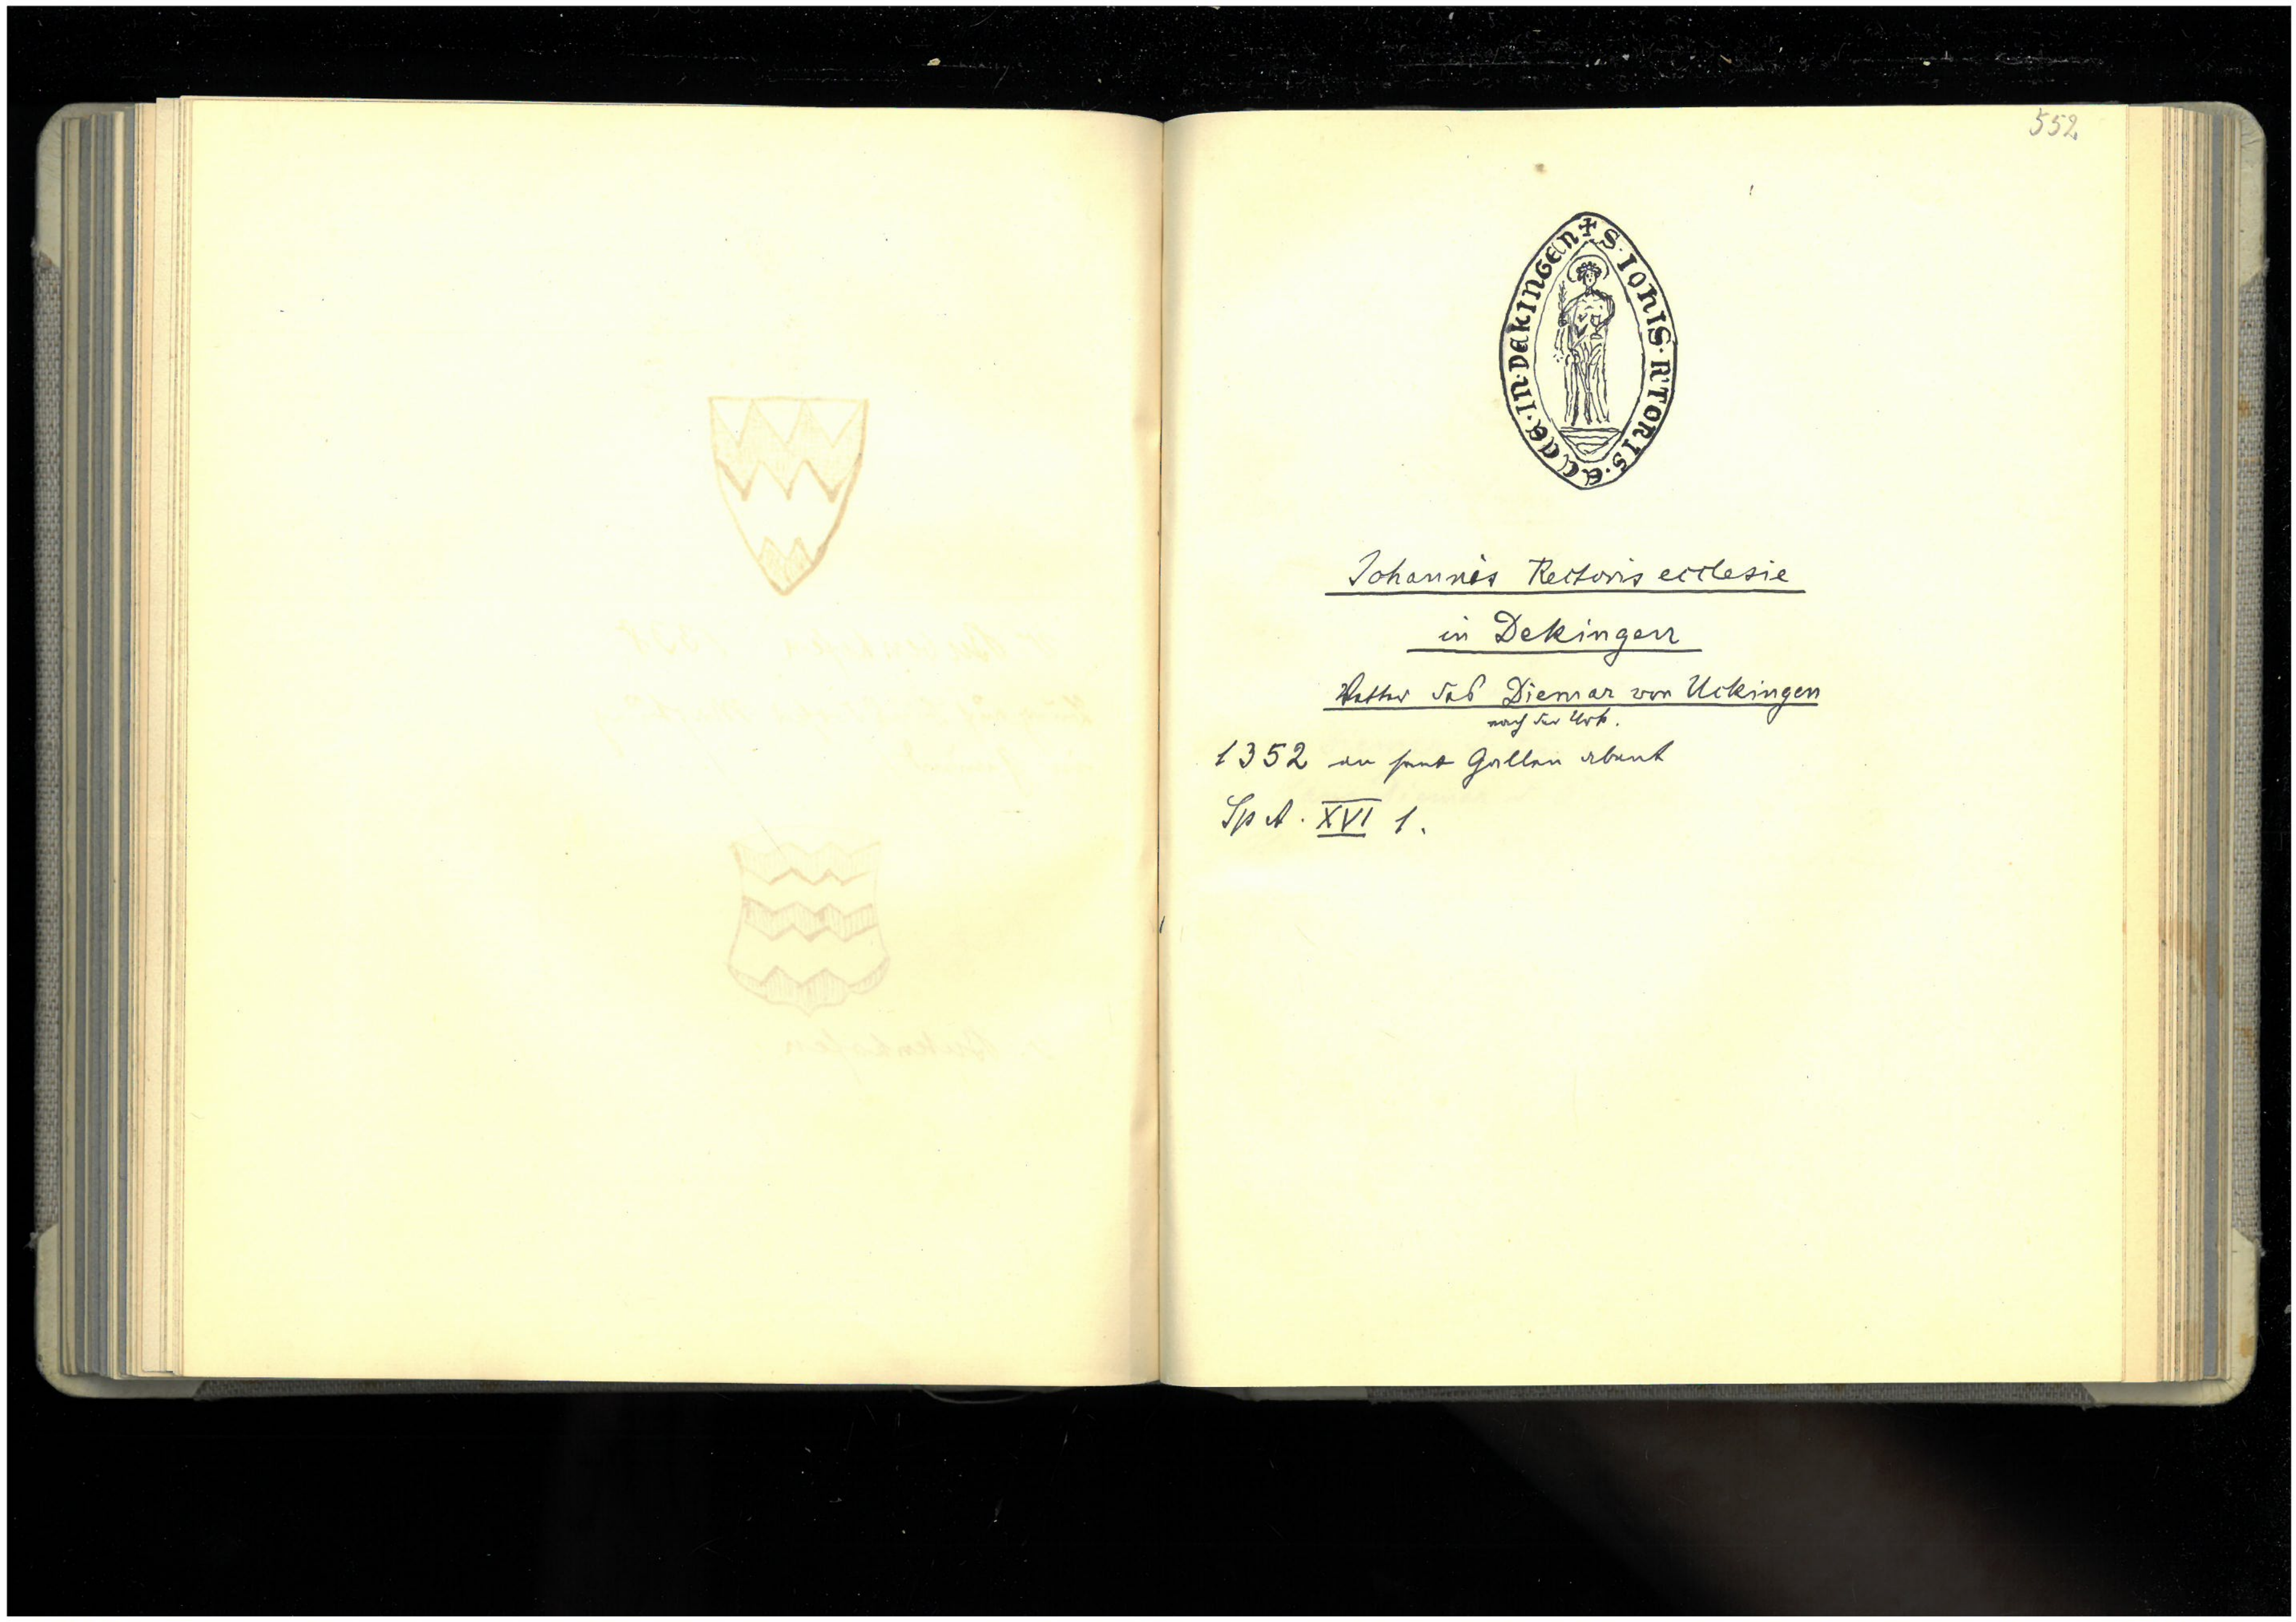 552
✠ S · IOHIS · R'TORIS · ECCE · IN · DEKINGEN
Johannis Rectoris ecclesie
in Dekingen
Vetter des Diemar von Uckingen
nach der Urk.
1352 an sant Gallen abent
Sp A. XVI 1.